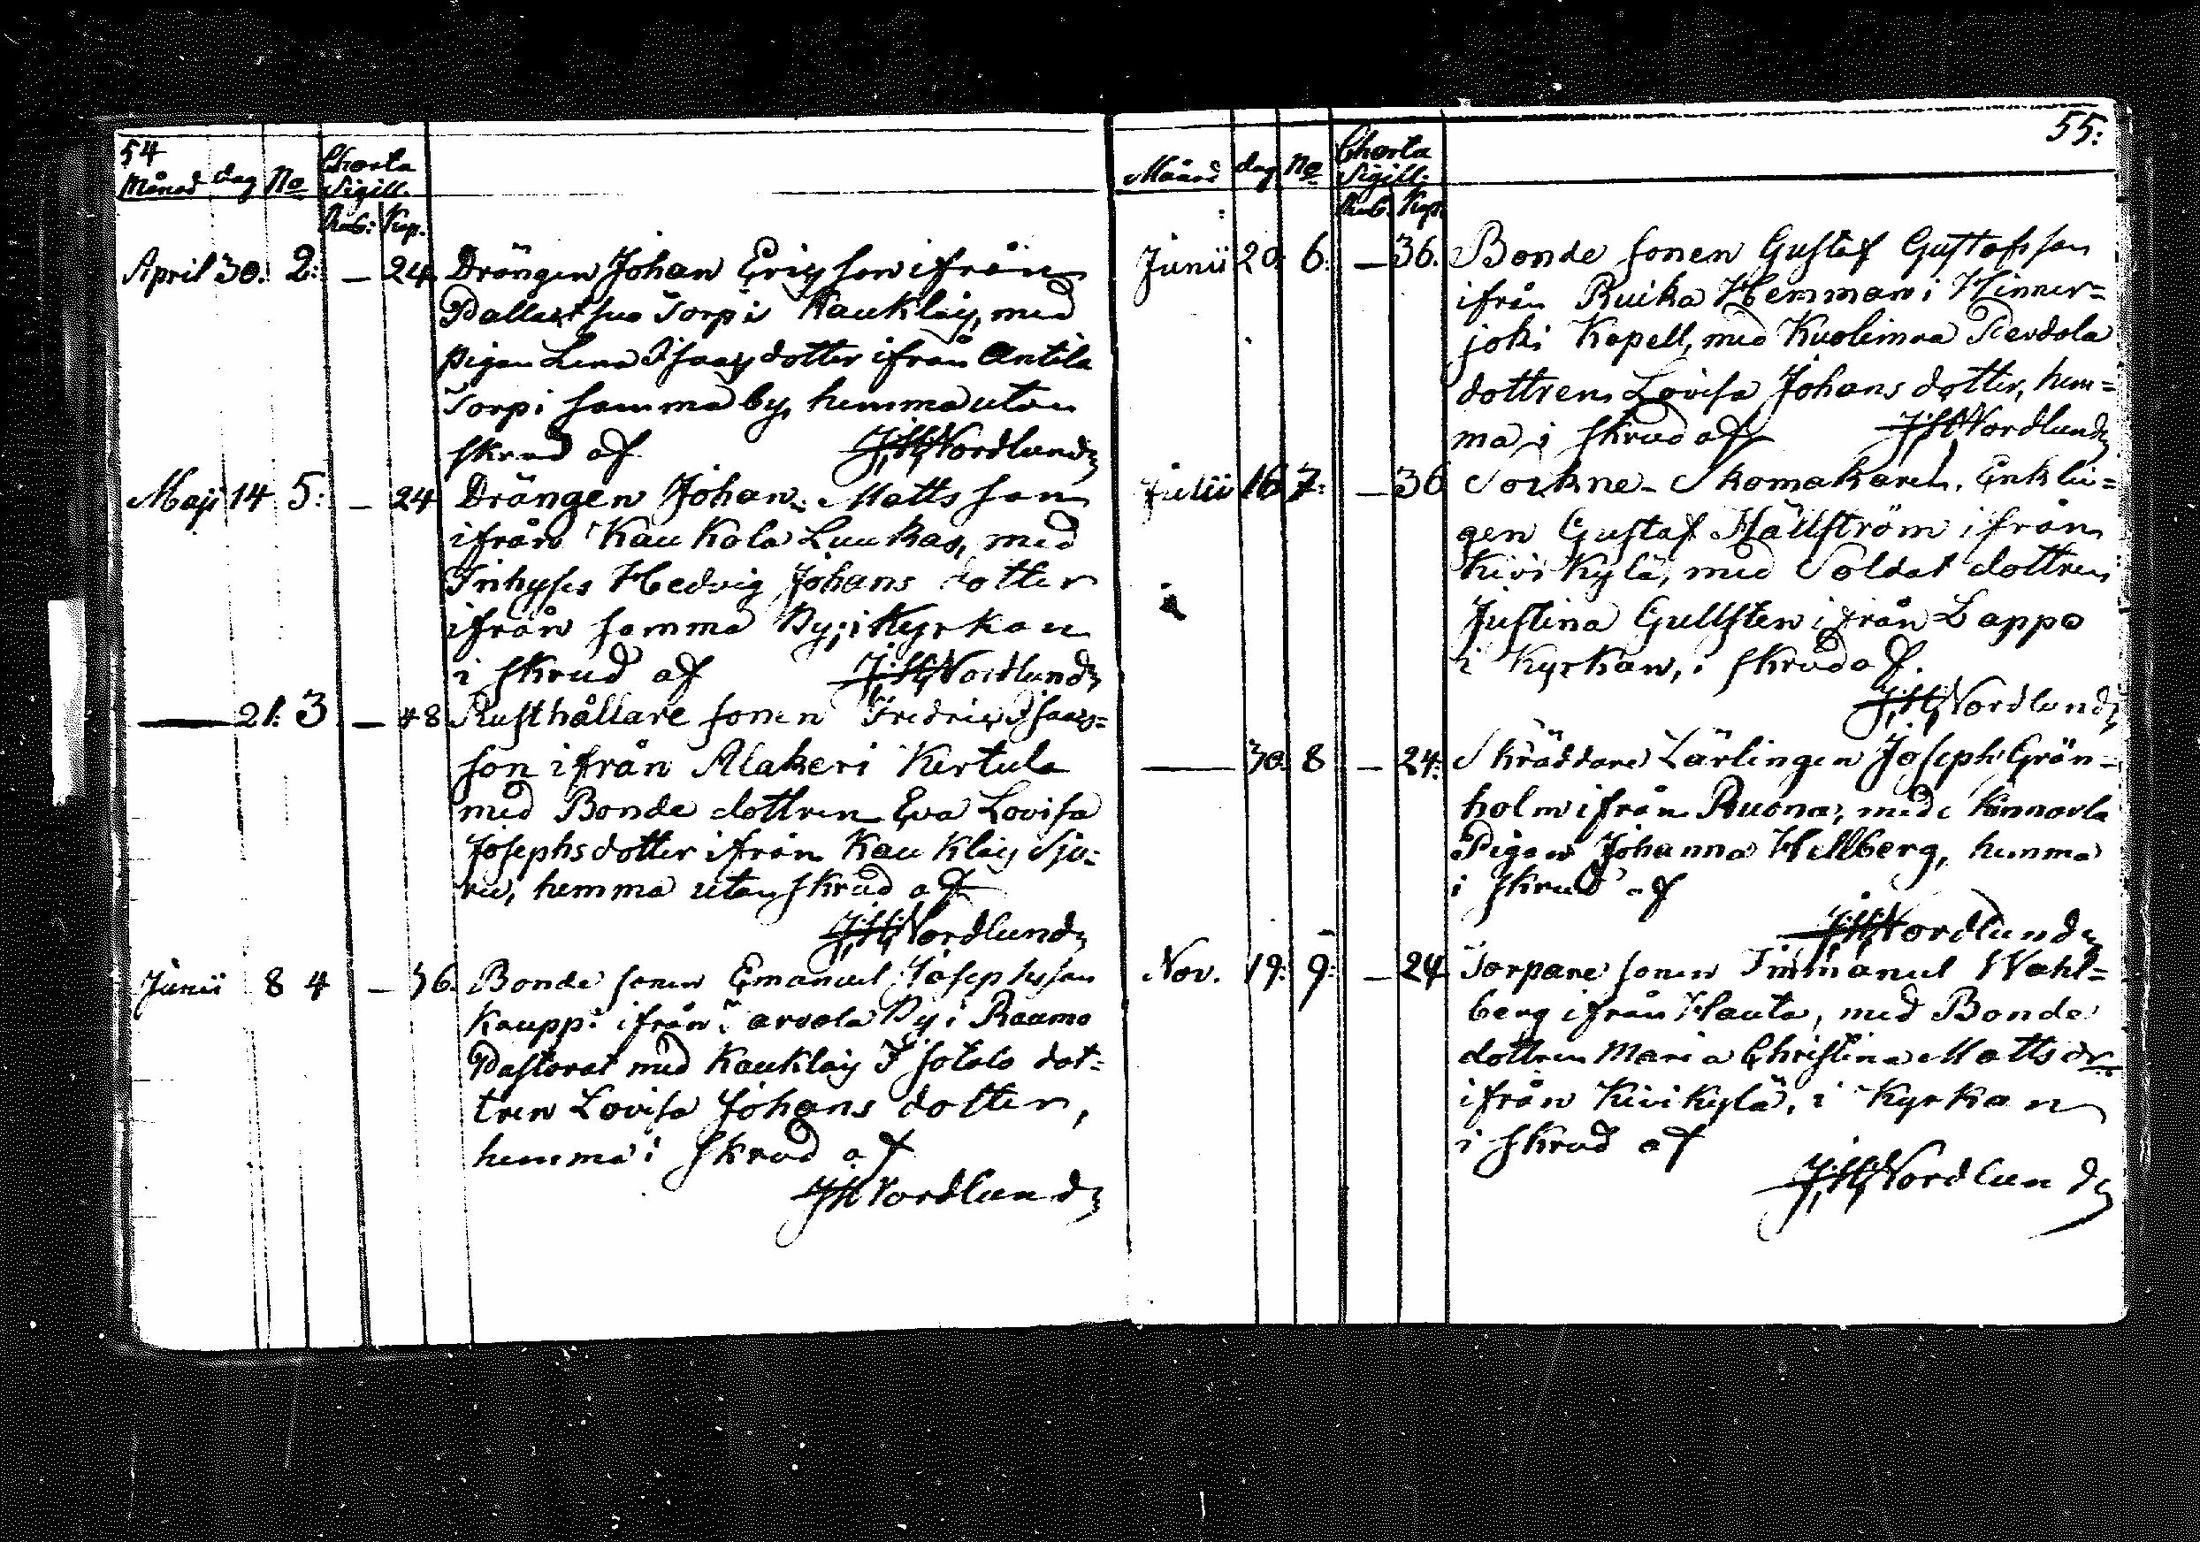 54
Månad dag No Charta Sigill.
Rub: Kop.
April 30. 2: — 24 Drängen Johan Ericsson ifrån
Torp i Kauklaij, med
pigan Lena Isaacsdotter ifrån Antila
Torp i samma by, hemma utan
skrud af J:H:Nordlund
Maji 14 5: — 24 Drängen Johan Mattsson
ifrån Kaukola Luukas, med
Inhyses Hedvig Johans dotter
ifrån samma By, i Kyrkan
i skrud af J:H:Nordlund
— 21: 3 — 48 Rusthållare sonen Fredric Isaacs=
son ifrån Alakeri Kertula
med Bonde dottren Eva Lovisa
Josephsdotter ifrån Kauklaij Sju=
ru, hemma utan skrud af
J:H:Nordlund
Junii 8 4 — 36. Bonde sonen Emanuel Josephsson
Kauppi ifrån arvola By i Raumo
Pastorat med Kauklaij Isotalo dot=
tren Lovisa Johans dotter,
hemma i skrud af
JHNordlund
55:
Månad dag No Charta Sigill:
Rub. Kop.
Junii 20. 6. — 36. Bonde sonen Gustaf Gustafsson
ifrån Ruika Hemman i Hinner=
joki Kapell, med Kuolimaa Perdola
dottren Lovisa Johans dotter, hem=
ma i skrud af J:H:Nordlund
Julii 16 7: — 36 Sockne-Skomakaren, Enklin=
gen Gustaf Hällström ifrån
Kivikylä, med Soldat dottren
Justina Gullsten ifrån Lappo
i Kyrkan, i skrud af.
J:H:Nordlund
— 30. 8 — 24: Skräddare Lärlingen Joseph Grön=
holm ifrån Ruona, med Kinnarla
Pigan Johanna Hellberg, hemma
i skrud af
J:H:Nordlund
Nov. 19: 9: — 24 Torpare sonen Immanuel Wahl=
berg ifrån Hauta, med Bonde
dottren Maria Christina Mattsdr
ifrån Kivikylä, i Kyrkan
i skrud af
J:H:Nordlund